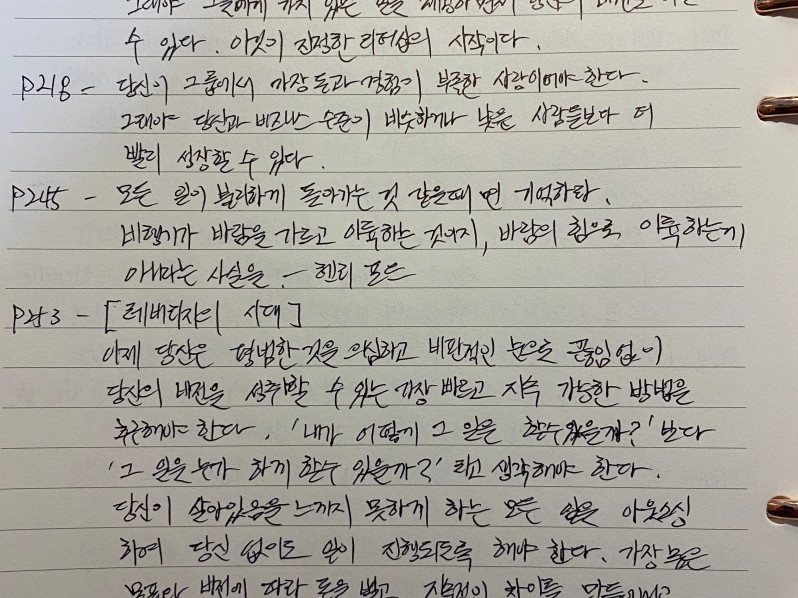 수 있다. 이것이 진정한 리더십의 시작이다.
P218 - 당신이 그룹에서 가장 돈과 경험이 부족한 사람이어야 한다.
그래야 당신과 비즈니스 수준이 비슷하거나 낮은 사람들보다 더
빨리 성장할 수 있다.
P245 - 모든 일이 불리하게 돌아가는 것 같을때 면 기억하라.
비행기가 바람을 가르고 이륙하는 것이지, 바람의 힘으로 이륙하는게
아니라는 사실을. - 헨리 포드
[레버리지의 시대]
이제 당신은 평범한 것을 의심하고 비판적인 눈으로 끊임없이
당신의 비전을 성취할 수 있는 가장 빠르고 지속 가능한 방법을
추구해야 한다. '내가 어떻게 그 일을 할수있을까?' 보다
'그 일을 누가 하게 할수 있을까?' 라고 생각해야 한다.
당신이 살아있음을 느끼지 못하게 하는 모든 일을 아웃소싱
하여 당신 없이도 일이 진행되도록 해야 한다. 가장 높은